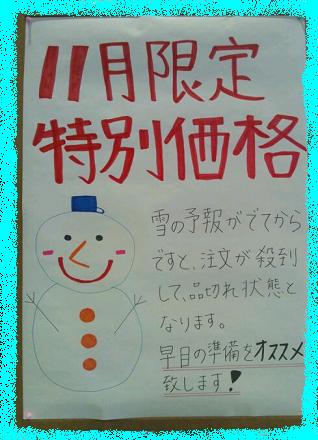 11月限定
特別価格
雪の予報がでてから
ですと、注文が殺到
して、品切れ状態と
なります。
早目の準備をオススメ
致します!